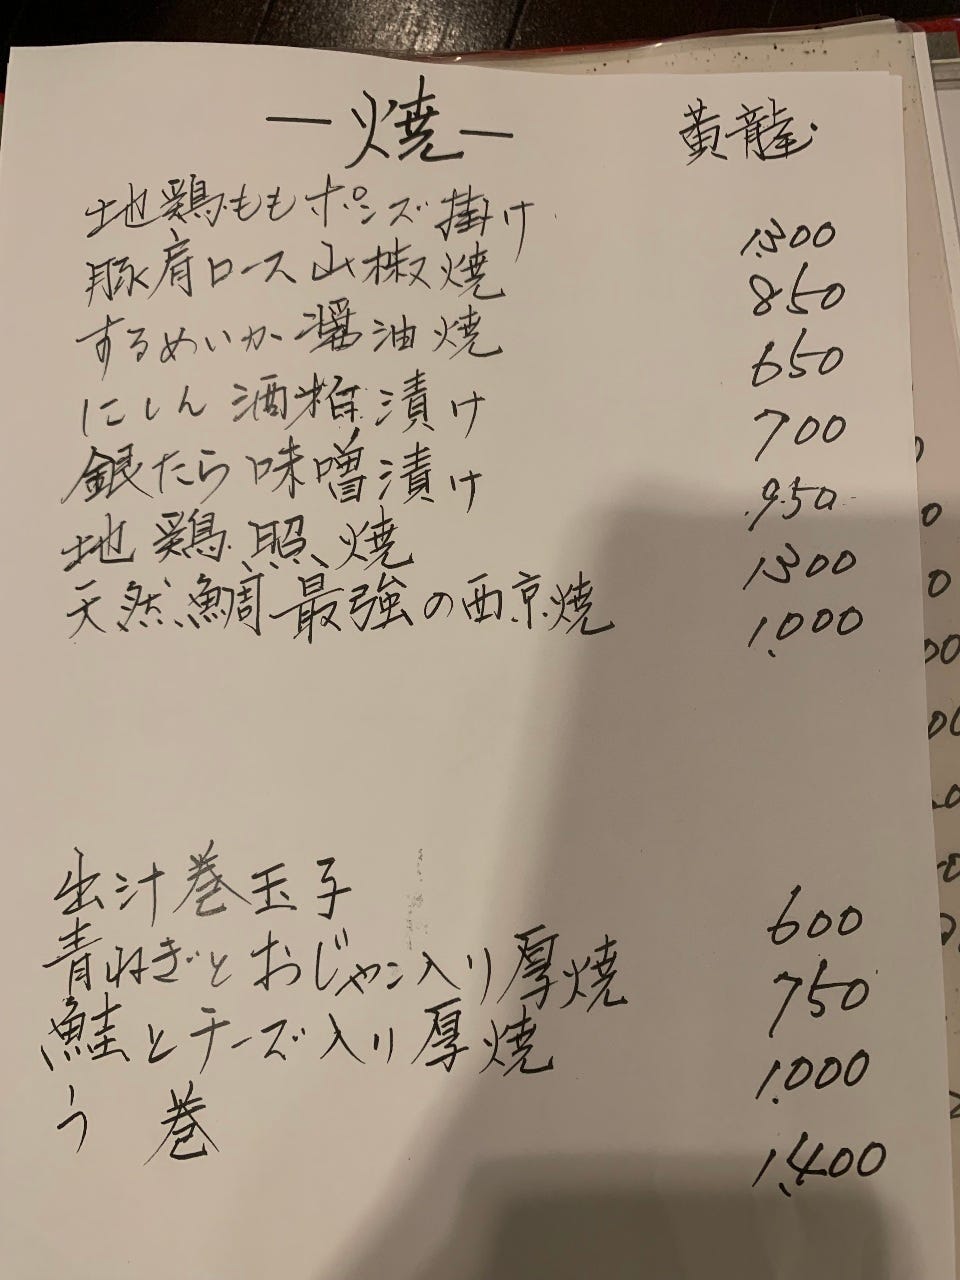 ー焼ー
黄龍
地鶏ももポンズ掛け 1,300
豚肩ロース山椒焼 850
するめいか醤油焼 650
にしん酒粕漬け 700
銀たら味噌漬け 950
地鶏照焼 1300
天然鯛最強の西京焼 1,000
出汁巻玉子 600
青ねぎとおじゃこ入り厚焼 750
鮭とチーズ入り厚焼 1,000
う巻 1,400